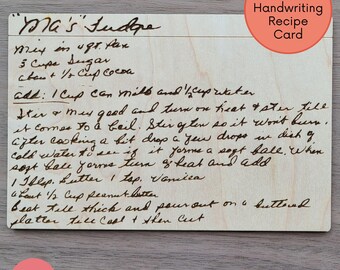 "Ma's" Fudge
Handwriting
Recipe
Card
Mix in 4 qt. Pan
3 Cups Sugar
about 1/2 Cup Cocoa
add: 1 Cup Can Milk and 1/2 Cup Water
Stir & Mix good and turn on heat & stir till
it comes to a boil. Stir often so it won't burn.
after cooking a bit drop a few drops in dish of
cold water to see if it forms a soft ball. When
soft ball forms turn off heat and add
1 Tblsp. butter 1 tsp. Vanilla
about 1/2 Cup peanut butter
beat till thick and pour out on a buttered
platter till Cool & then Cut